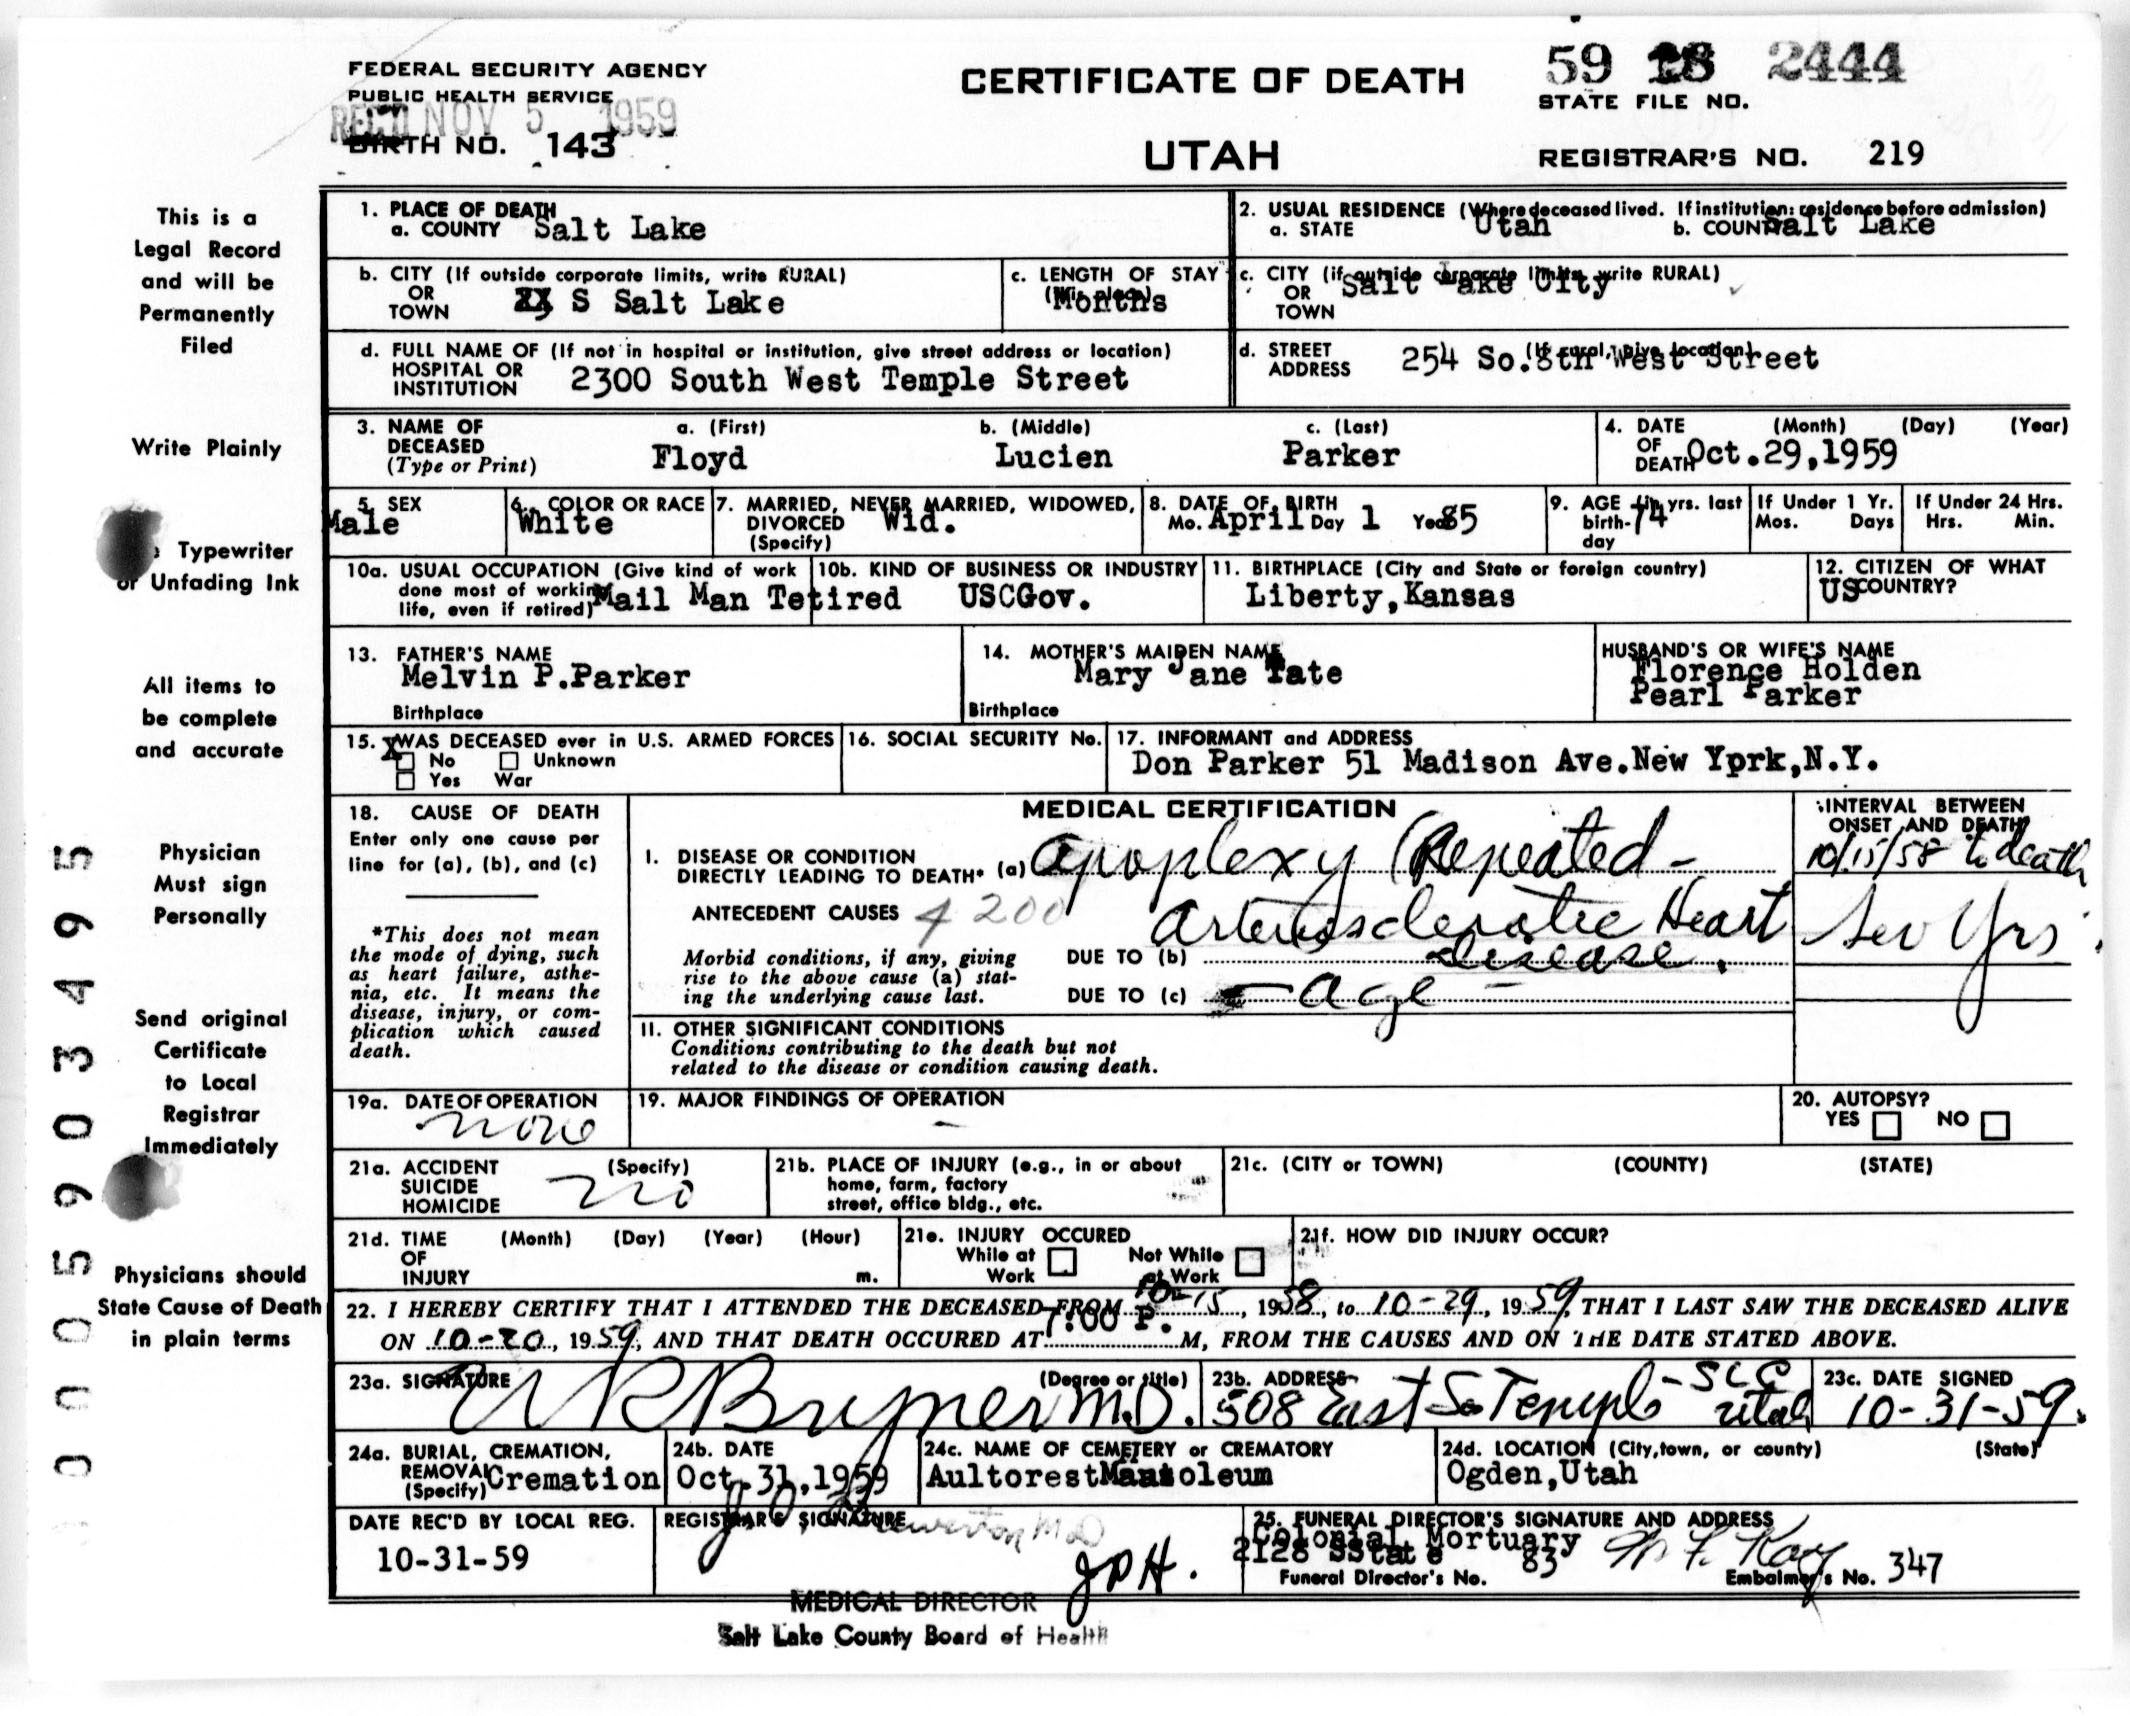 FEDERAL SECURITY AGENCY
PUBLIC HEALTH SERVICE
REC'D NOV 5 1959
BIRTH NO. 143
CERTIFICATE OF DEATH
UTAH
59 18 2444
STATE FILE NO.
REGISTRAR'S NO. 219
This is a
Legal Record
and will be
Permanently
Filed
Write Plainly
Typewriter
or Unfading Ink
All items to
be complete
and accurate
Physician
Must sign
Personally
Send original
Certificate
to Local
Registrar
Immediately
Physicians should
State Cause of Death
in plain terms
1. PLACE OF DEATH
a. COUNTY Salt Lake
2. USUAL RESIDENCE (Where deceased lived. If institution: residence before admission)
a. STATE Utah b. COUNTY Salt Lake
b. CITY (If outside corporate limits, write RURAL)
OR
TOWN S Salt Lake
c. LENGTH OF STAY
(in this place)
Months
c. CITY (if outside corporate limits, write RURAL)
OR
TOWN
Salt Lake City
d. FULL NAME OF (If not in hospital or institution, give street address or location)
HOSPITAL OR
INSTITUTION 2300 South West Temple Street
d. STREET
ADDRESS
(If rural, give location)
254 So.8th West Street
3. NAME OF
DECEASED
(Type or Print)
a. (First)
Floyd
b. (Middle)
Lucien
c. (Last)
Parker
4. DATE (Month) (Day) (Year)
OF
DEATH Oct.29,1959
5. SEX
Male
6. COLOR OR RACE
White
7. MARRIED, NEVER MARRIED, WIDOWED,
DIVORCED Wid.
(Specify)
8. DATE OF BIRTH
Mo. April Day 1 Year 85
9. AGE (in yrs. last
birth- 74
day
If Under 1 Yr.
Mos. Days
If Under 24 Hrs.
Hrs. Min.
10a. USUAL OCCUPATION (Give kind of work
done most of working
life, even if retired) Mail Man Tetired
10b. KIND OF BUSINESS OR INDUSTRY
USCGov.
11. BIRTHPLACE (City and State or foreign country)
Liberty,Kansas
12. CITIZEN OF WHAT
COUNTRY? US
13. FATHER'S NAME
Melvin P.Parker
Birthplace
14. MOTHER'S MAIDEN NAME
Mary Jane Tate
Birthplace
HUSBAND'S OR WIFE'S NAME
Florence Holden
Pearl Parker
15. WAS DECEASED ever in U.S. ARMED FORCES
X No Unknown
Yes War
16. SOCIAL SECURITY No.
17. INFORMANT and ADDRESS
Don Parker 51 Madison Ave.New Yprk,N.Y.
18. CAUSE OF DEATH
Enter only one cause per
line for (a), (b), and (c)
*This does not mean
the mode of dying, such
as heart failure, asthe-
nia, etc. It means the
disease, injury, or com-
plication which caused
death.
MEDICAL CERTIFICATION
I. DISEASE OR CONDITION
DIRECTLY LEADING TO DEATH* (a) Apoplexy (Repeated-
ANTECEDENT CAUSES 4200
Morbid conditions, if any, giving
rise to the above cause (a) stat-
ing the underlying cause last.
DUE TO (b) Arteriosclerotic Heart
Disease.
DUE TO (c) - age -
INTERVAL BETWEEN
ONSET AND DEATH
10/15/58 to death
Sev Yrs
II. OTHER SIGNIFICANT CONDITIONS
Conditions contributing to the death but not
related to the disease or condition causing death.
19a. DATE OF OPERATION
none
19. MAJOR FINDINGS OF OPERATION
-
20. AUTOPSY?
YES NO
21a. ACCIDENT (Specify)
SUICIDE
HOMICIDE
no
21b. PLACE OF INJURY (e.g., in or about
home, farm, factory
street, office bldg., etc.
21c. (CITY or TOWN) (COUNTY) (STATE)
21d. TIME (Month) (Day) (Year) (Hour)
OF
INJURY m.
21e. INJURY OCCURED
While at Not While
Work at Work
21f. HOW DID INJURY OCCUR?
22. I HEREBY CERTIFY THAT I ATTENDED THE DECEASED FROM 10-15, 1958, to 10-29, 1959, THAT I LAST SAW THE DECEASED ALIVE
ON 10-20, 1959, AND THAT DEATH OCCURED AT 7:00 P. M, FROM THE CAUSES AND ON THE DATE STATED ABOVE.
23a. SIGNATURE (Degree or title)
M.D.
23b. ADDRESS
508 East So Temple - SLC
Utah
23c. DATE SIGNED
10-31-59.
24a. BURIAL, CREMATION,
REMOVAL
(Specify) Cremation
24b. DATE
Oct.31,1959
24c. NAME OF CEMETERY or CREMATORY
Aultorest Mausoleum
24d. LOCATION (City,town, or county) (State)
Ogden,Utah
DATE REC'D BY LOCAL REG.
10-31-59
REGISTRAR'S SIGNATURE
JPH.
25. FUNERAL DIRECTOR'S SIGNATURE AND ADDRESS
Colonial Mortuary
2128 SState 83
Funeral Director's No. Embalmer's No. 347
MEDICAL DIRECTOR
Salt Lake County Board of Health
0005903495